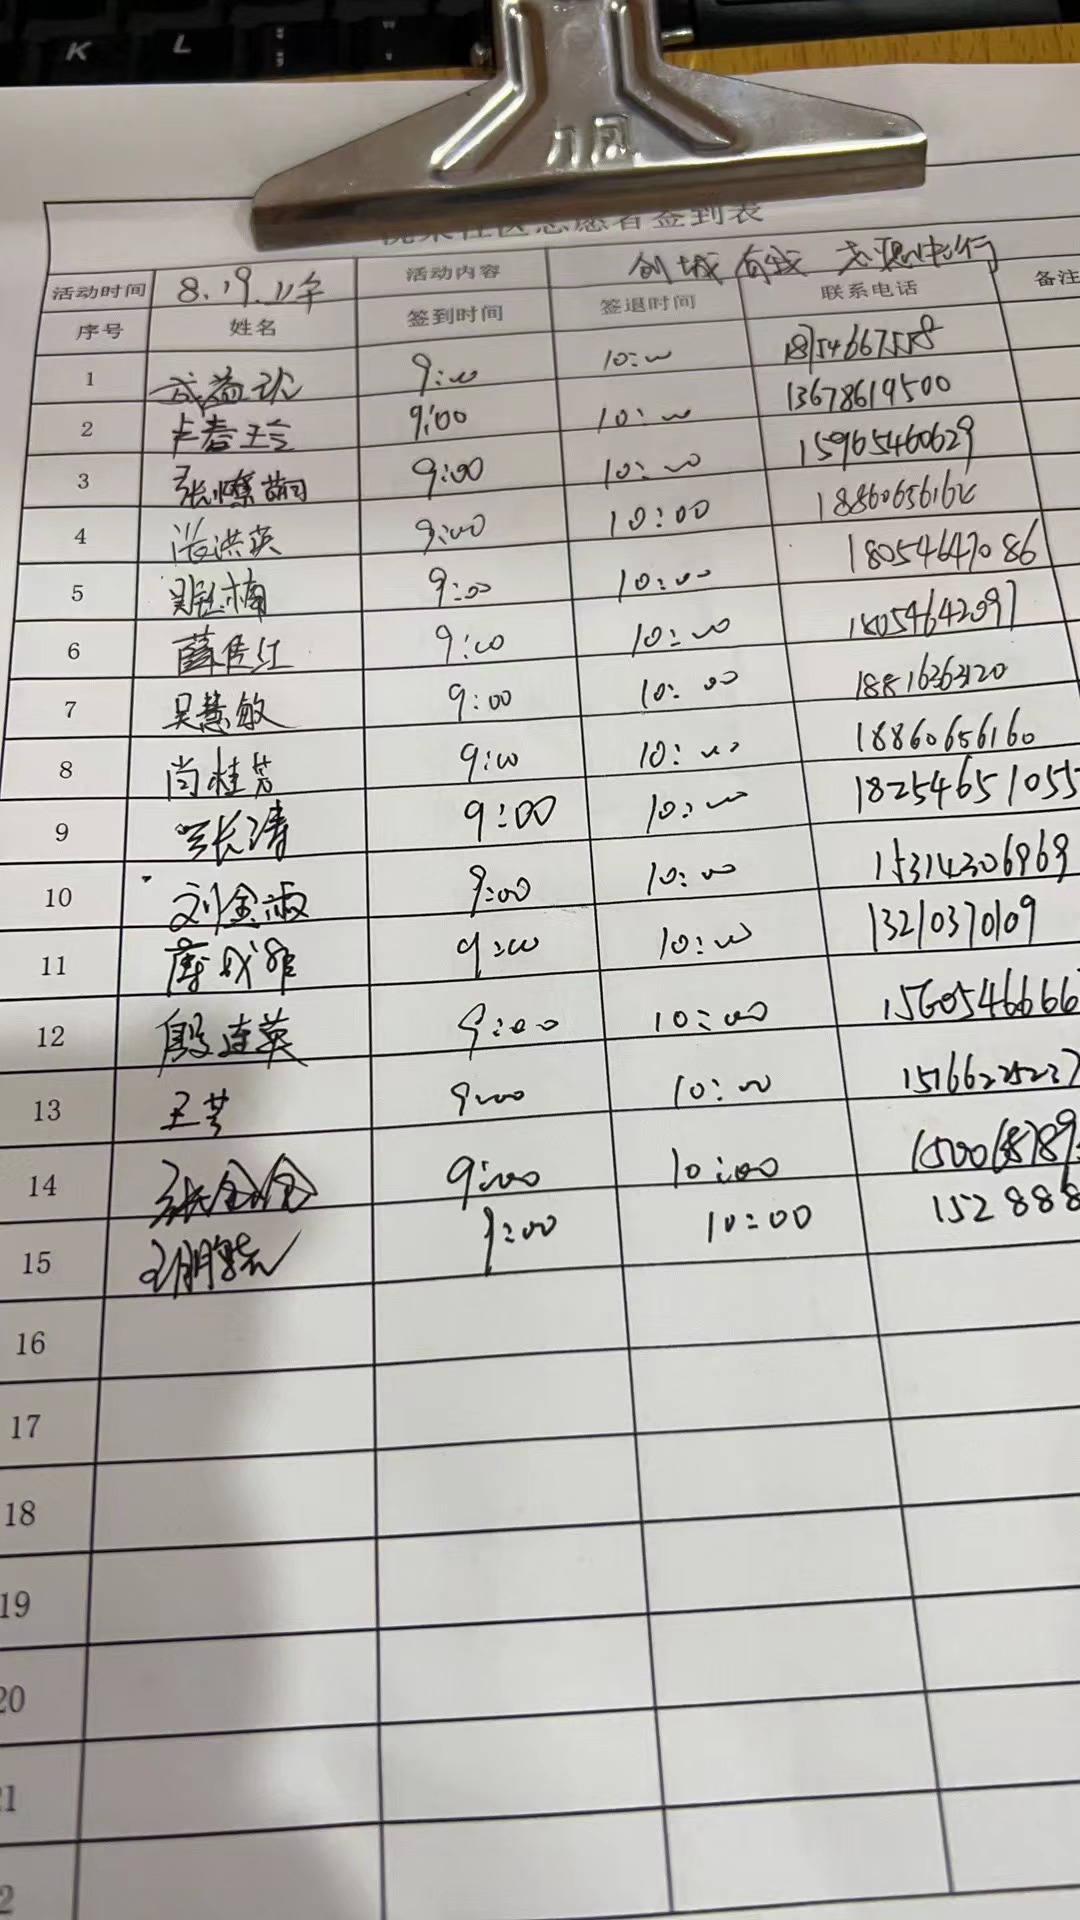 K L
社区志愿者签到表
活动时间 8.19.上午 活动内容 创城有我 志愿先行
序号 姓名 签到时间 签退时间 联系电话 备注
1 9:00 10:00
2 卢春玲 9:00 10:00 13678619500
3 张 9:00 10:00 15965460629
4 张洪英 9:00 10:00
5 9:00 10:00 18054647086
6 薛俊红 9:00 10:00 18054642097
7 吴慧敏 9:00 10:00
8 尚桂芳 9:00 10:00 18860656160
9 张涛 9:00 10:00 18254651055
10 刘金淑 9:00 10:00 15314306969
11 9:00 10:00 13210370109
12 殷连英 9:00 10:00 1560546666
13 王芳 9:00 10:00 15166225237
14 张 9:00 10:00
15 9:00 10:00 152888
16
17
18
19
20